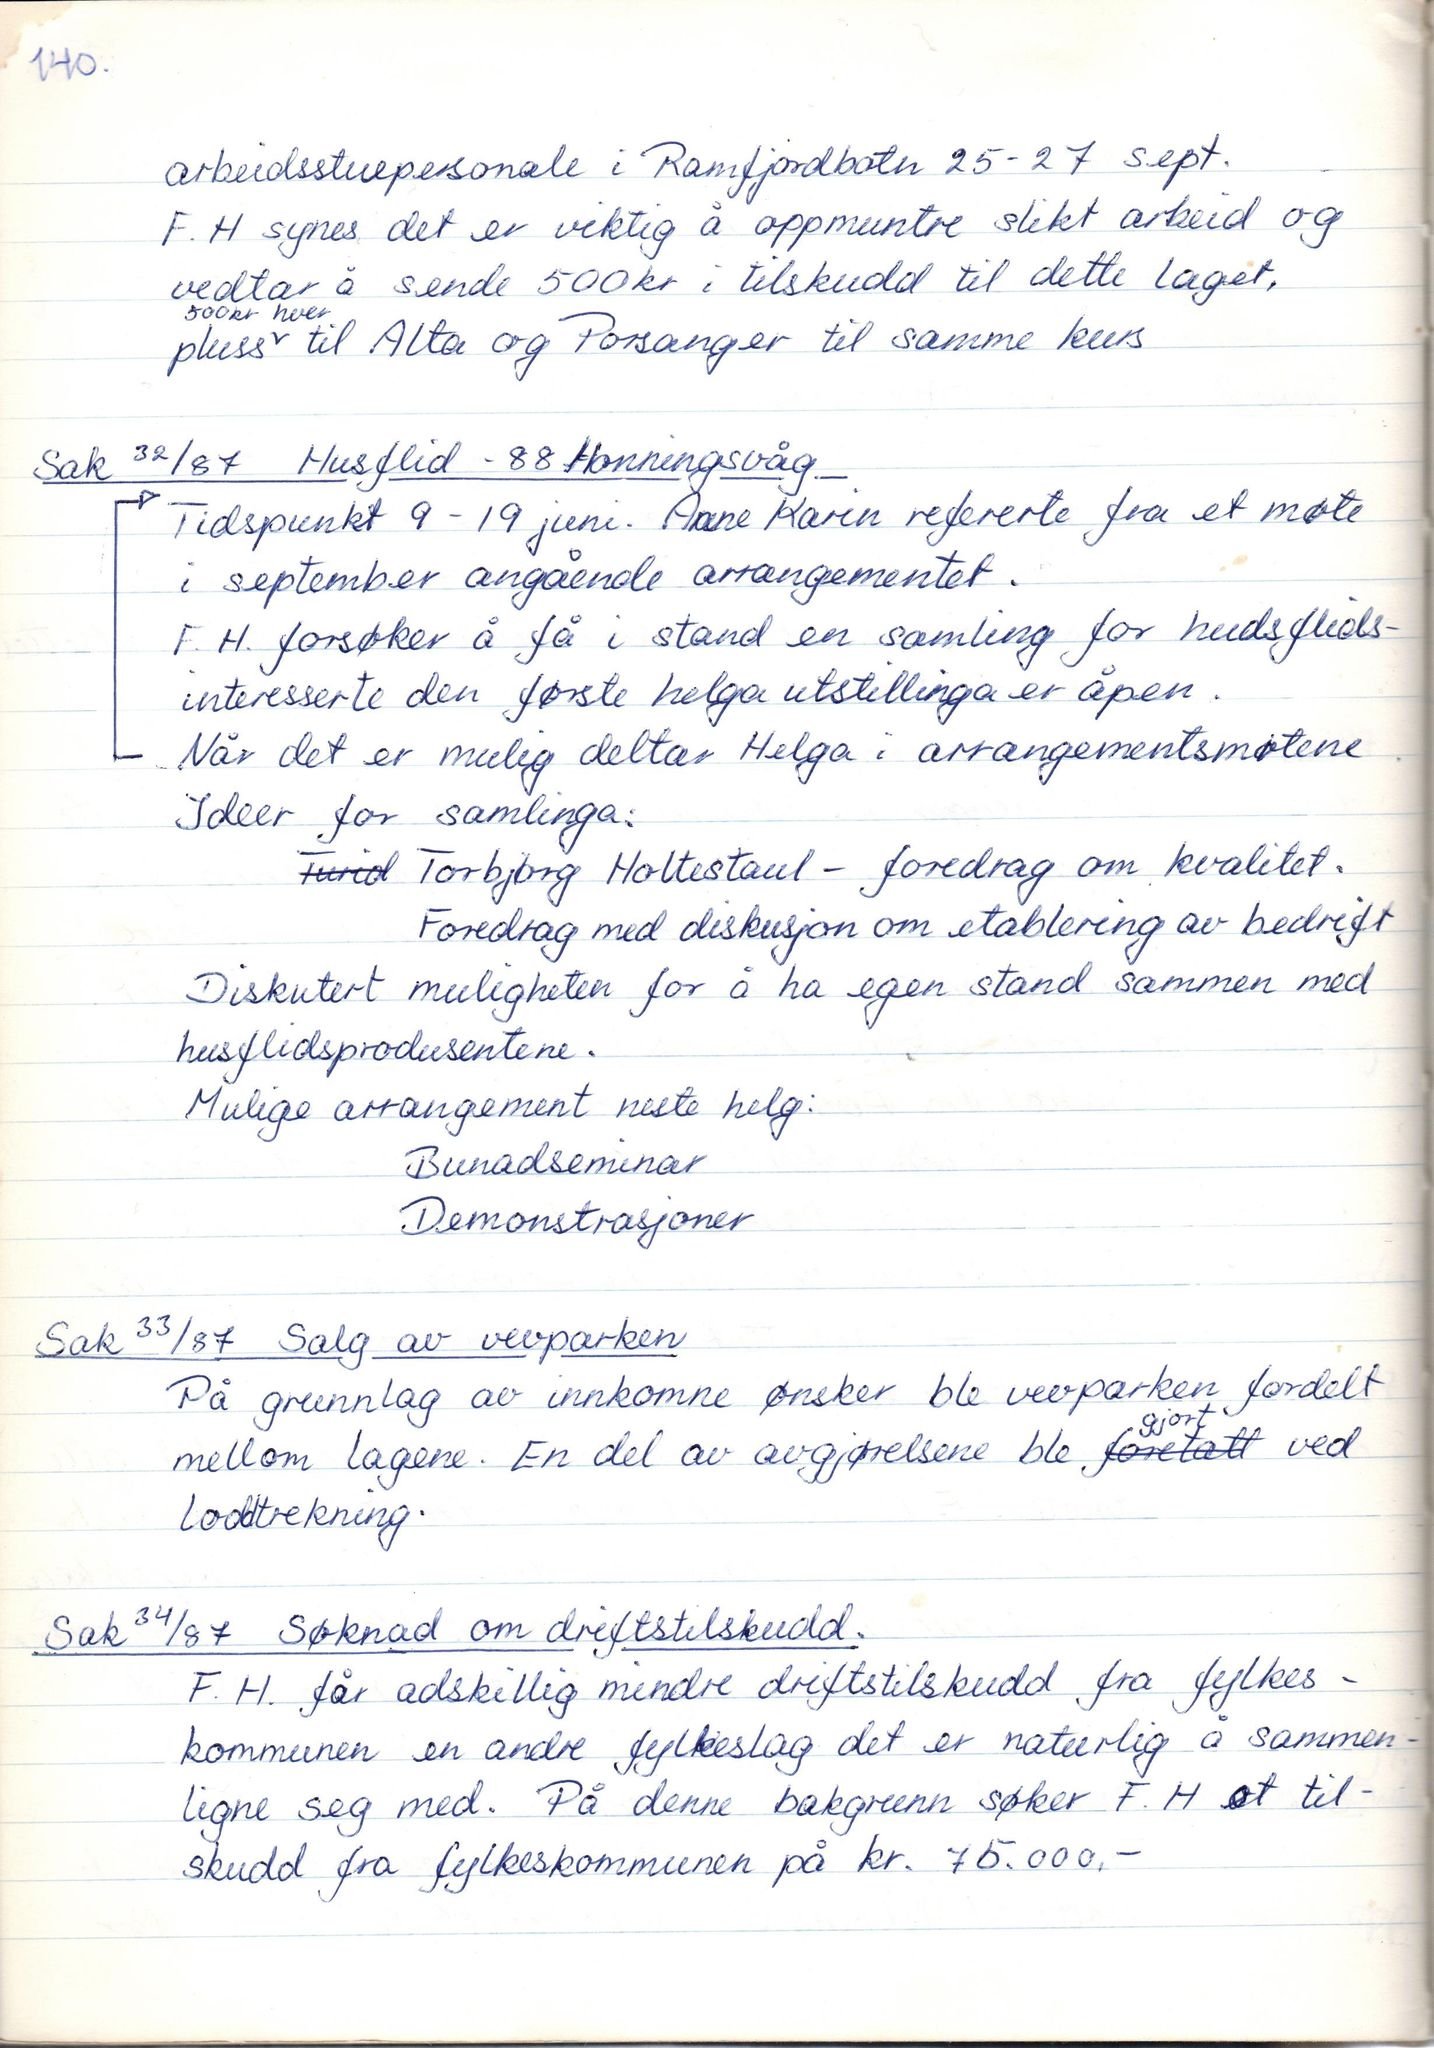 140.
arbeidsstuepersonale i Ramfjordbotn 25-27 sept.
F.H synes det er viktig å oppmuntre slikt arbeid og
vedtar å sende 500kr i tilskudd til dette laget,
500kr hver
pluss til Alta og Porsanger til samme kurs
Sak 32/87 Husflid - 88 Honningsvåg
Tidspunkt 9 - 19 juni. Anne Karin refererte fra et møte
i september angående arrangementet.
F.H. forsøker å få i stand en samling for hudsflids-
interesserte den første helga utstillinga er åpen.
Når det er mulig deltar Helga i arrangementsmøtene
Ideer for samlinga:
Turid Torbjørg Holtestaul - foredrag om kvalitet.
Foredrag med diskusjon om etablering av bedrift
Diskutert muligheten for å ha egen stand sammen med
husflidsprodusentene.
Mulige arrangement neste helg:
Bunadseminar
Demonstrasjoner
Sak 33/87 Salg av vevparken
På grunnlag av innkomne ønsker ble vevparken fordelt
gjort
mellom lagene. En del av avgjørelsene ble foretatt ved
loddtrekning.
Sak 34/87 Søknad om driftstilskudd.
F.H. får adskillig mindre driftstilskudd fra fylkes-
kommunen en andre fylkeslag det er naturlig å sammen-
ligne seg med. På denne bakgrunn søker F.H et til-
skudd fra fylkeskommunen på kr. 75.000,-